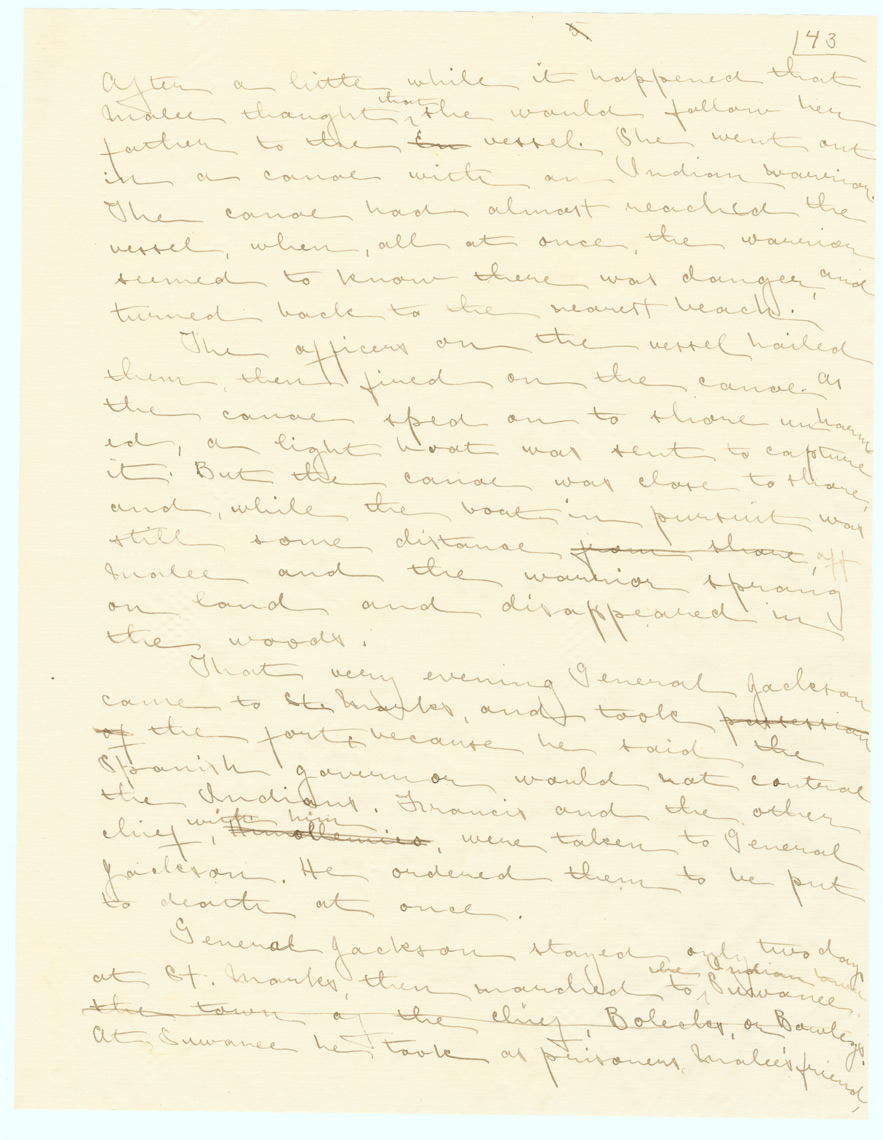 43
After a little while it happened that
Malee thought that she would follow her
father to the vessel. She went out
in a canoe with an Indian warrior.
The canoe had almost reached the
vessel, when, all at once, the warrior
seemed to know there was danger, and
turned back to the nearest beach.
The officers on the vessel hailed
them, then fired on the canoe. As
the canoe sped on to shore unharm-
ed, a light boat was sent to capture
it. But the canoe was close to shore,
and, while the boat in pursuit was
still some distance from shore, off
Malee and the warrior sprang
on land and disappeared in
the woods.
That very evening General Jackson
came to St. Marks, and took possession
of the fort, because he said the
Spanish governor would not control
the Indians. Francis and the other
chief, with him Himollemico, were taken to General
Jackson. He ordered them to be put
to death at once.
General Jackson stayed only two days
at St. Marks, then marched to the Indian town Suwanee,
the town of the chief, Bolecks, or Bowlegs.
At Suwanee he took as prisoners, Malee's friend,